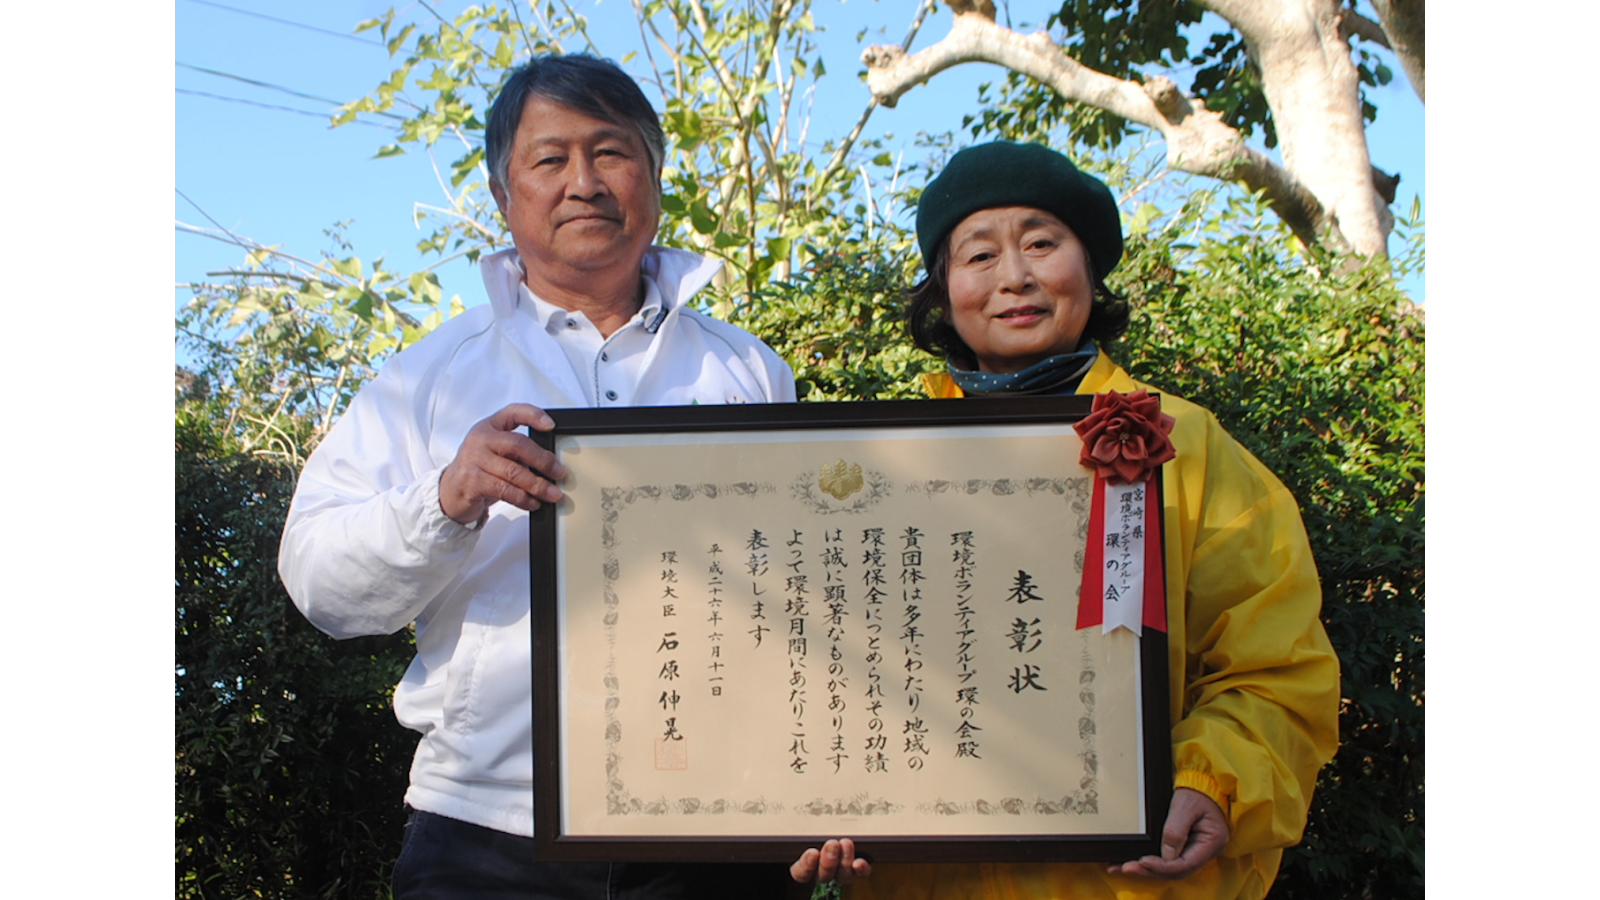 表彰状
環境ボランティアグループ環の会殿
貴団体は多年にわたり地域の
環境保全につとめられその功績
は誠に顕著なものがあります
よって環境月間にあたりこれを
表彰します
平成二十六年六月十一日
環境大臣 石原伸晃
宮崎県
環境ボランティアグループ
環の会